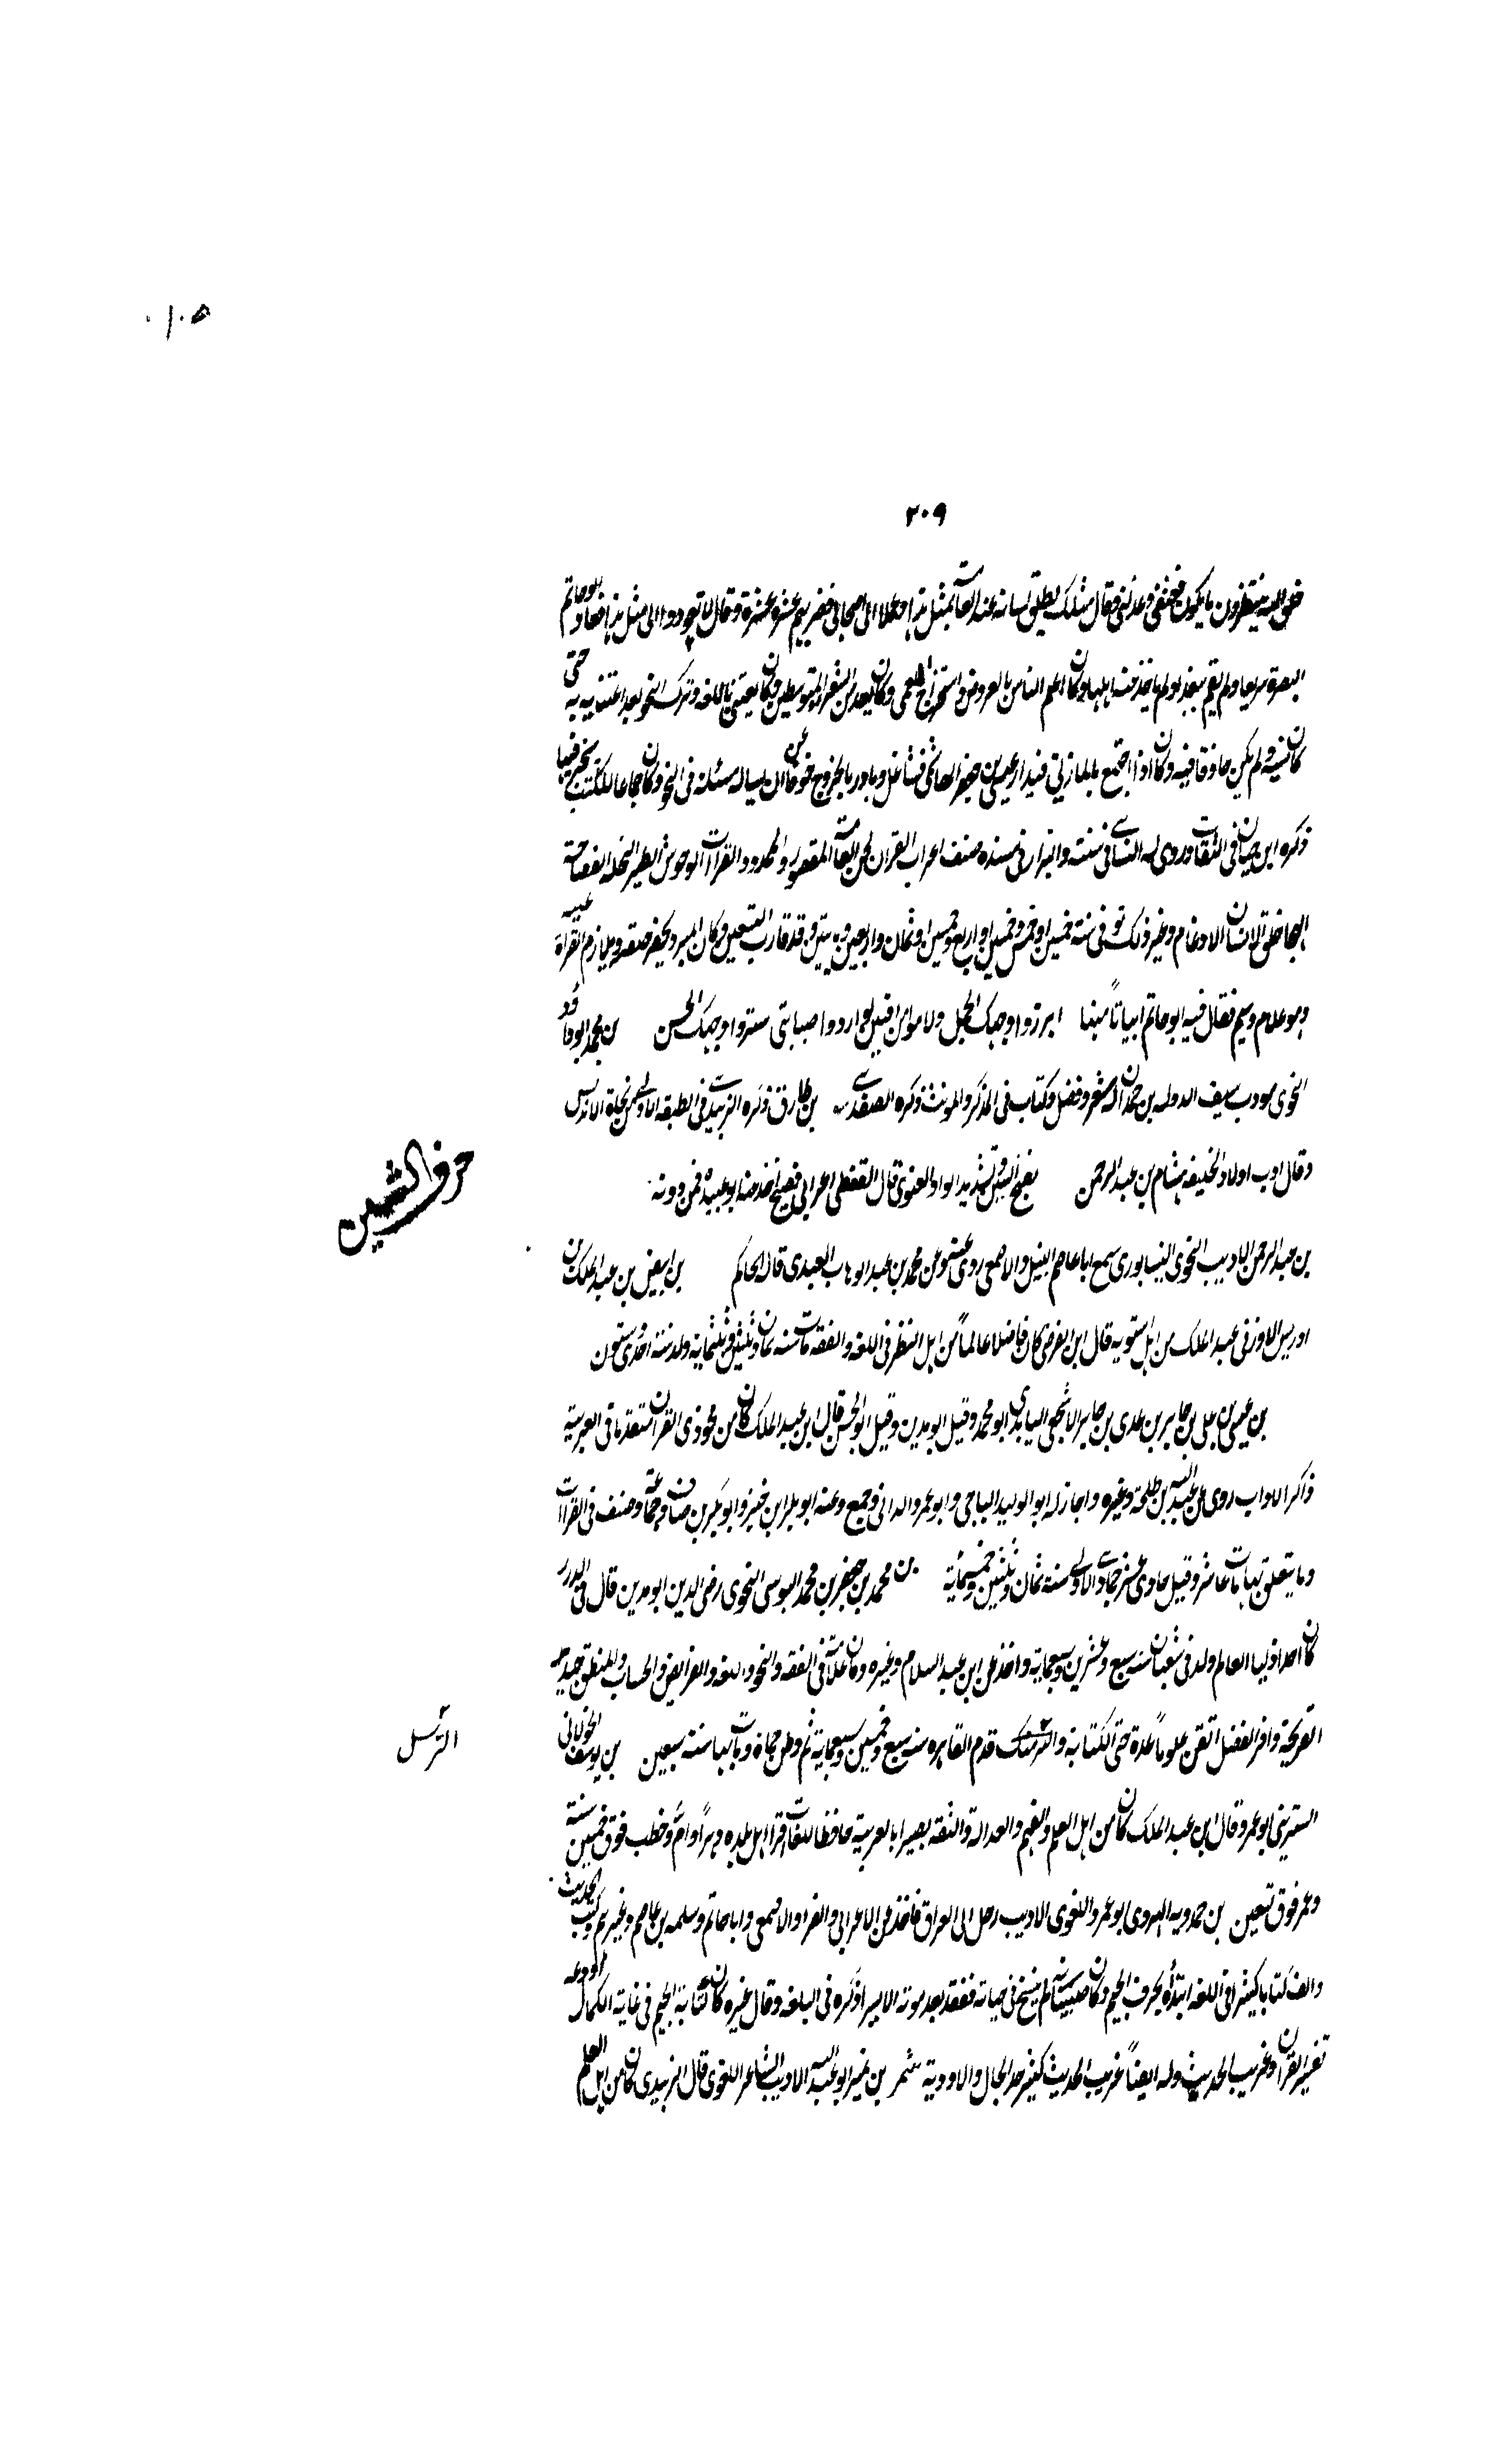 ٠١٠٥
٢٠٩
خلق الله ينتظرون ما يكون فعنفني وعذلني وقال مثلك يطلق لسانه عند العامة بمثل هذا وعلا الى اصحابى فضربهم عشرة عشرة وقال لا تعودوا الى مثل هذا فعاد ابو حاتم
البصرة سريعا ولم يقم ببغداد ولم ياخذ منه اهلها وكان اعلم الناس بالعروض واستخراج المعمى وكان يعد من الشعراء المتوسطين وكان يعتنى باللغة وترك النحو بعد اعتنائه به حتى
كانه نسيه ولم يكن حاذقا فيه وكان اذا اجتمع بالمازني في دار عيسى بن جعفر الهاشمي تشاغل وبادر بالخروج خوفا من ان يساله مسئلة فى النحو وكان جماعا للكتب يتجر فيها
ذكره ابن حبان في الثقات وروى له النسائي في سننه والبزار في مسنده صنف اعراب القران لحن العامة المقصور والممدود القراءات الوحوش الطير النخلة الفصاحة
الهجا خلق الانسان الادغام وغير ذلك توفى سنة خمسين او خمس وخمسين او اربع وخمسين او ثمان واربعين ومايتين وقد قارب التسعين وكان المبرد يحضر حلقته ويلازم القراءة عليه
وهو غلام وسيم فقال فيه ابو حاتم ابياتا منها ابرزوا وجهك الجميل ولاموا من افتتن لو ارادوا صيانتى ستروا وجهك الحسن بن محمد ابو قاقد
النحوى مودب سيف الدولة بن حمدان له شعر وفضل وكتاب فى المذكر والمونث ذكره الصفدى بن طارق ذكره الزبيدي فى الطبقة الاولى من نحاة الاندلس
وقال ادب اولاد الخليفة هشام بن عبد الرحمن بفتح السين وتشديد الواو الغنوى قال القفطى اعرابى فصيح اخذ عنه ابو عبيدة فمن دونه
حرف الشين
بن عبد الرحمن الاديب النحوى النيسابورى سمع ابا عاصم النبيل والاصمعى روى عنه محمد بن عبد الوهاب العبدى قاله الحاكم بن ابيض بن عبد الملك بن
ادريس الاوزنى عبد الملك من اهل استويه قال ابن الفرضى كان فاضلا عالما من اهل النظر فى اللغة والفقه مات سنة ثمان وثلثين وثلثماية ولد سنة احدى وستون
بن عيسى بن على بن جابر بن عدى بن جابر الاشجعى اليابرى ابو محمد وقيل ابو مدين وقيل ابو الحسن قال ابن عبد الملك كان من مجودى القران متقدما فى العربية
ذاكرا للاداب روى عن عبد الله بن طلحة وغيره واجاز له ابو الوليد الباجى وابو عمرو الدانى وجمع وعنه ابو بكر ابن خير وابو بكر بن صاف وجماعة وصنف فى القراءات
وما يتعلق بها مات عاشر وقيل حادى عشر جمادى الاولى سنة ثمان وثلثين وخمسمائة بن محمد بن جعفر بن محمد البوسى النحوى رضى الدين ابو مدين قال فى الدرر
كان احد اذكيا العالم ولد فى شعبان سنة سبع وعشرين وسبعماية واخذ عن ابن عبد السلام وغيره وكان علامة فى الفقه والنحو واللغة والفرايض والحساب والمنطق جيد
القريحة وافر الفضل اتقن علوما عدة حتى الكتابة والترسل قدم القاهرة سنة سبع وخمسين وسبعماية ثم وطن حماة ومات بها سنة سبعين بن يوسف الخولانى
الترسل
السترينى ابو عمرو قال ابن عبد الملك كان من اهل العلم والفهم والعدالة والثقة بصيرا بالعربية حافظا للغات اقرا اهل بلده دهرا وام وخطب فوق خمسين سنة
وعمر فوق تسعين بن حمدويه الهروى ابو عمرو اللغوى الاديب رحل الى العراق فاخذ عن الاعرابى والفراء والاصمعى وابا حاتم وسلمة بن عاصم وغيرهم وكتب الحديث
والف كتابا كبيرا فى اللغة ابتداه بحرف الجيم وكان ضنينا به لم ينسخ فى حياته ففقد بعد موته الا يسيرا ذكره فى البلغة وقال غيره كان كتابه الجيم فى غاية الكمال اودعه
تفسير القران وغريب الحديث وله ايضا غريب الحديث كبير جدا الجبال والاودية شمر بن نمير ابو عبد الله الاديب الشاعر اللغوى قال الزبيدى كان من اهل العلم